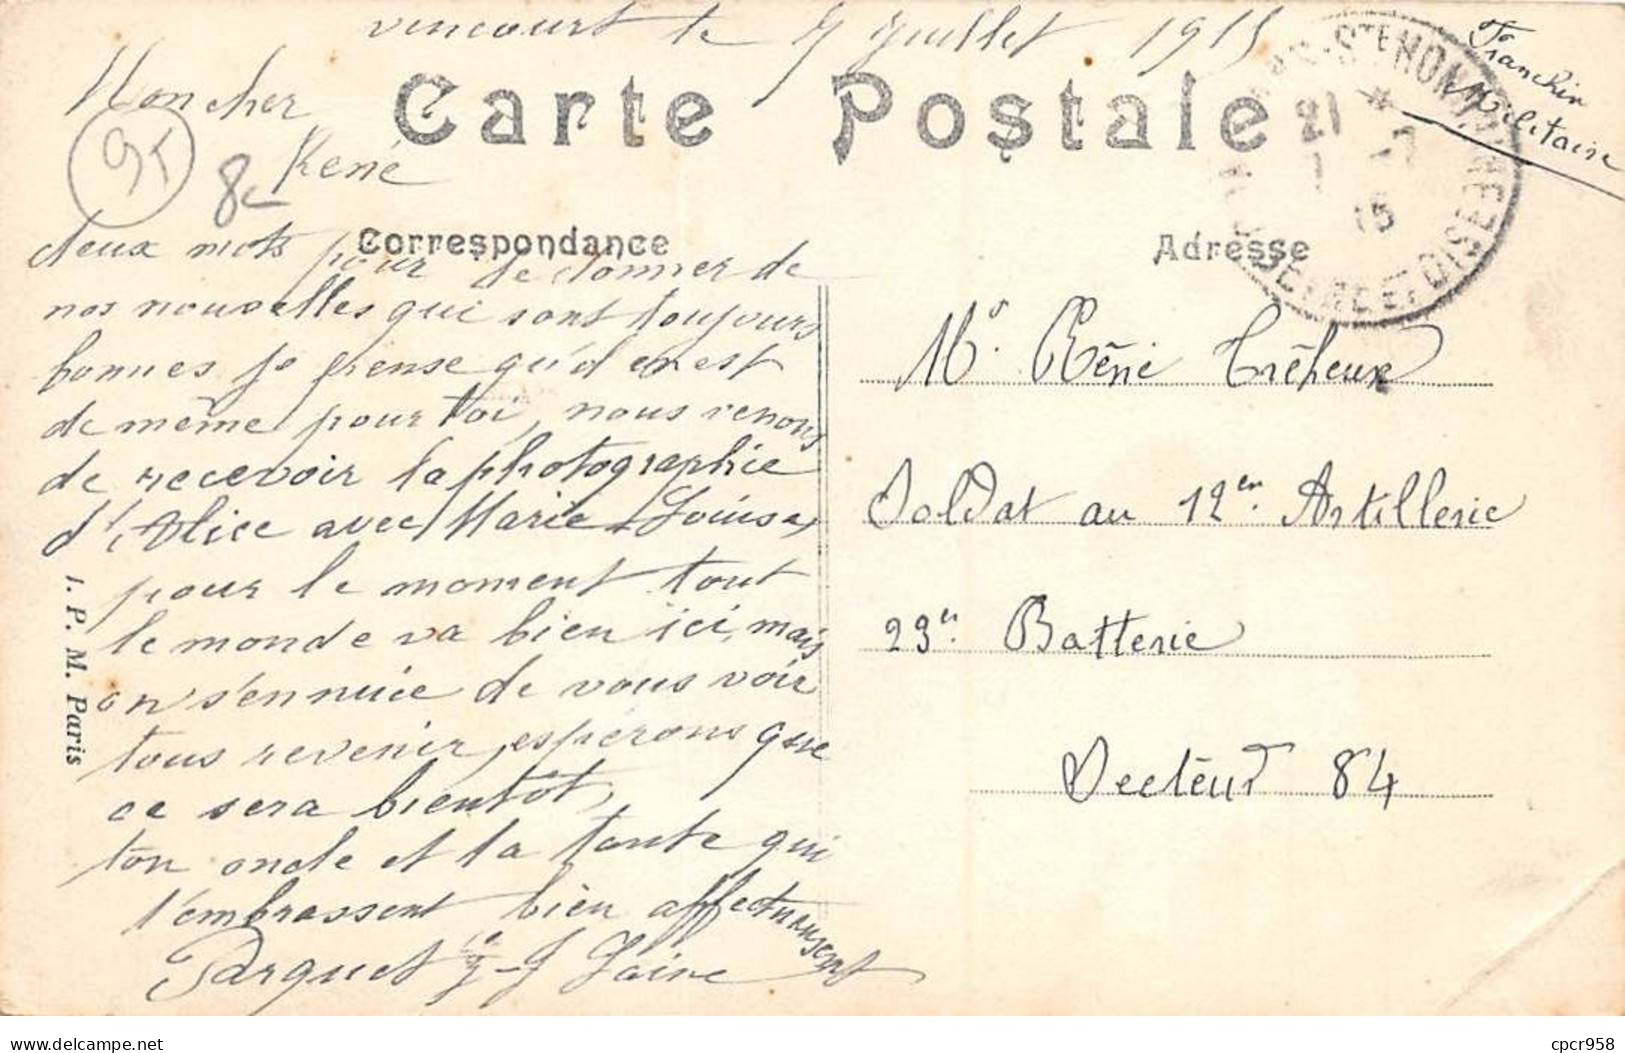 vencourt le 7 Juillet 1915
Franchise
Militaire
Mon cher
René
Carte Postale
95
8c
Correspondance
deux mots pour te donner de
nos nouvelles qui sont toujours
bonnes je pense qu'il en est
de même pour toi, nous venons
de recevoir la photographie
d'Alice avec Marie Louise,
pour le moment tout
le monde va bien ici, mais
on s'ennuie de vous voir
tous revenir, espérons que
ce sera bientôt,
ton oncle et la tante qui
t'embrassent bien affectueusement
Parquet
I. P. M. Paris
Adresse
Mr. René Tréheux
Soldat au 12em Artillerie
23em Batterie
Secteur 84
21 *
7 -7
15
SEINE ET OISE
delcampe.net
cpcr958